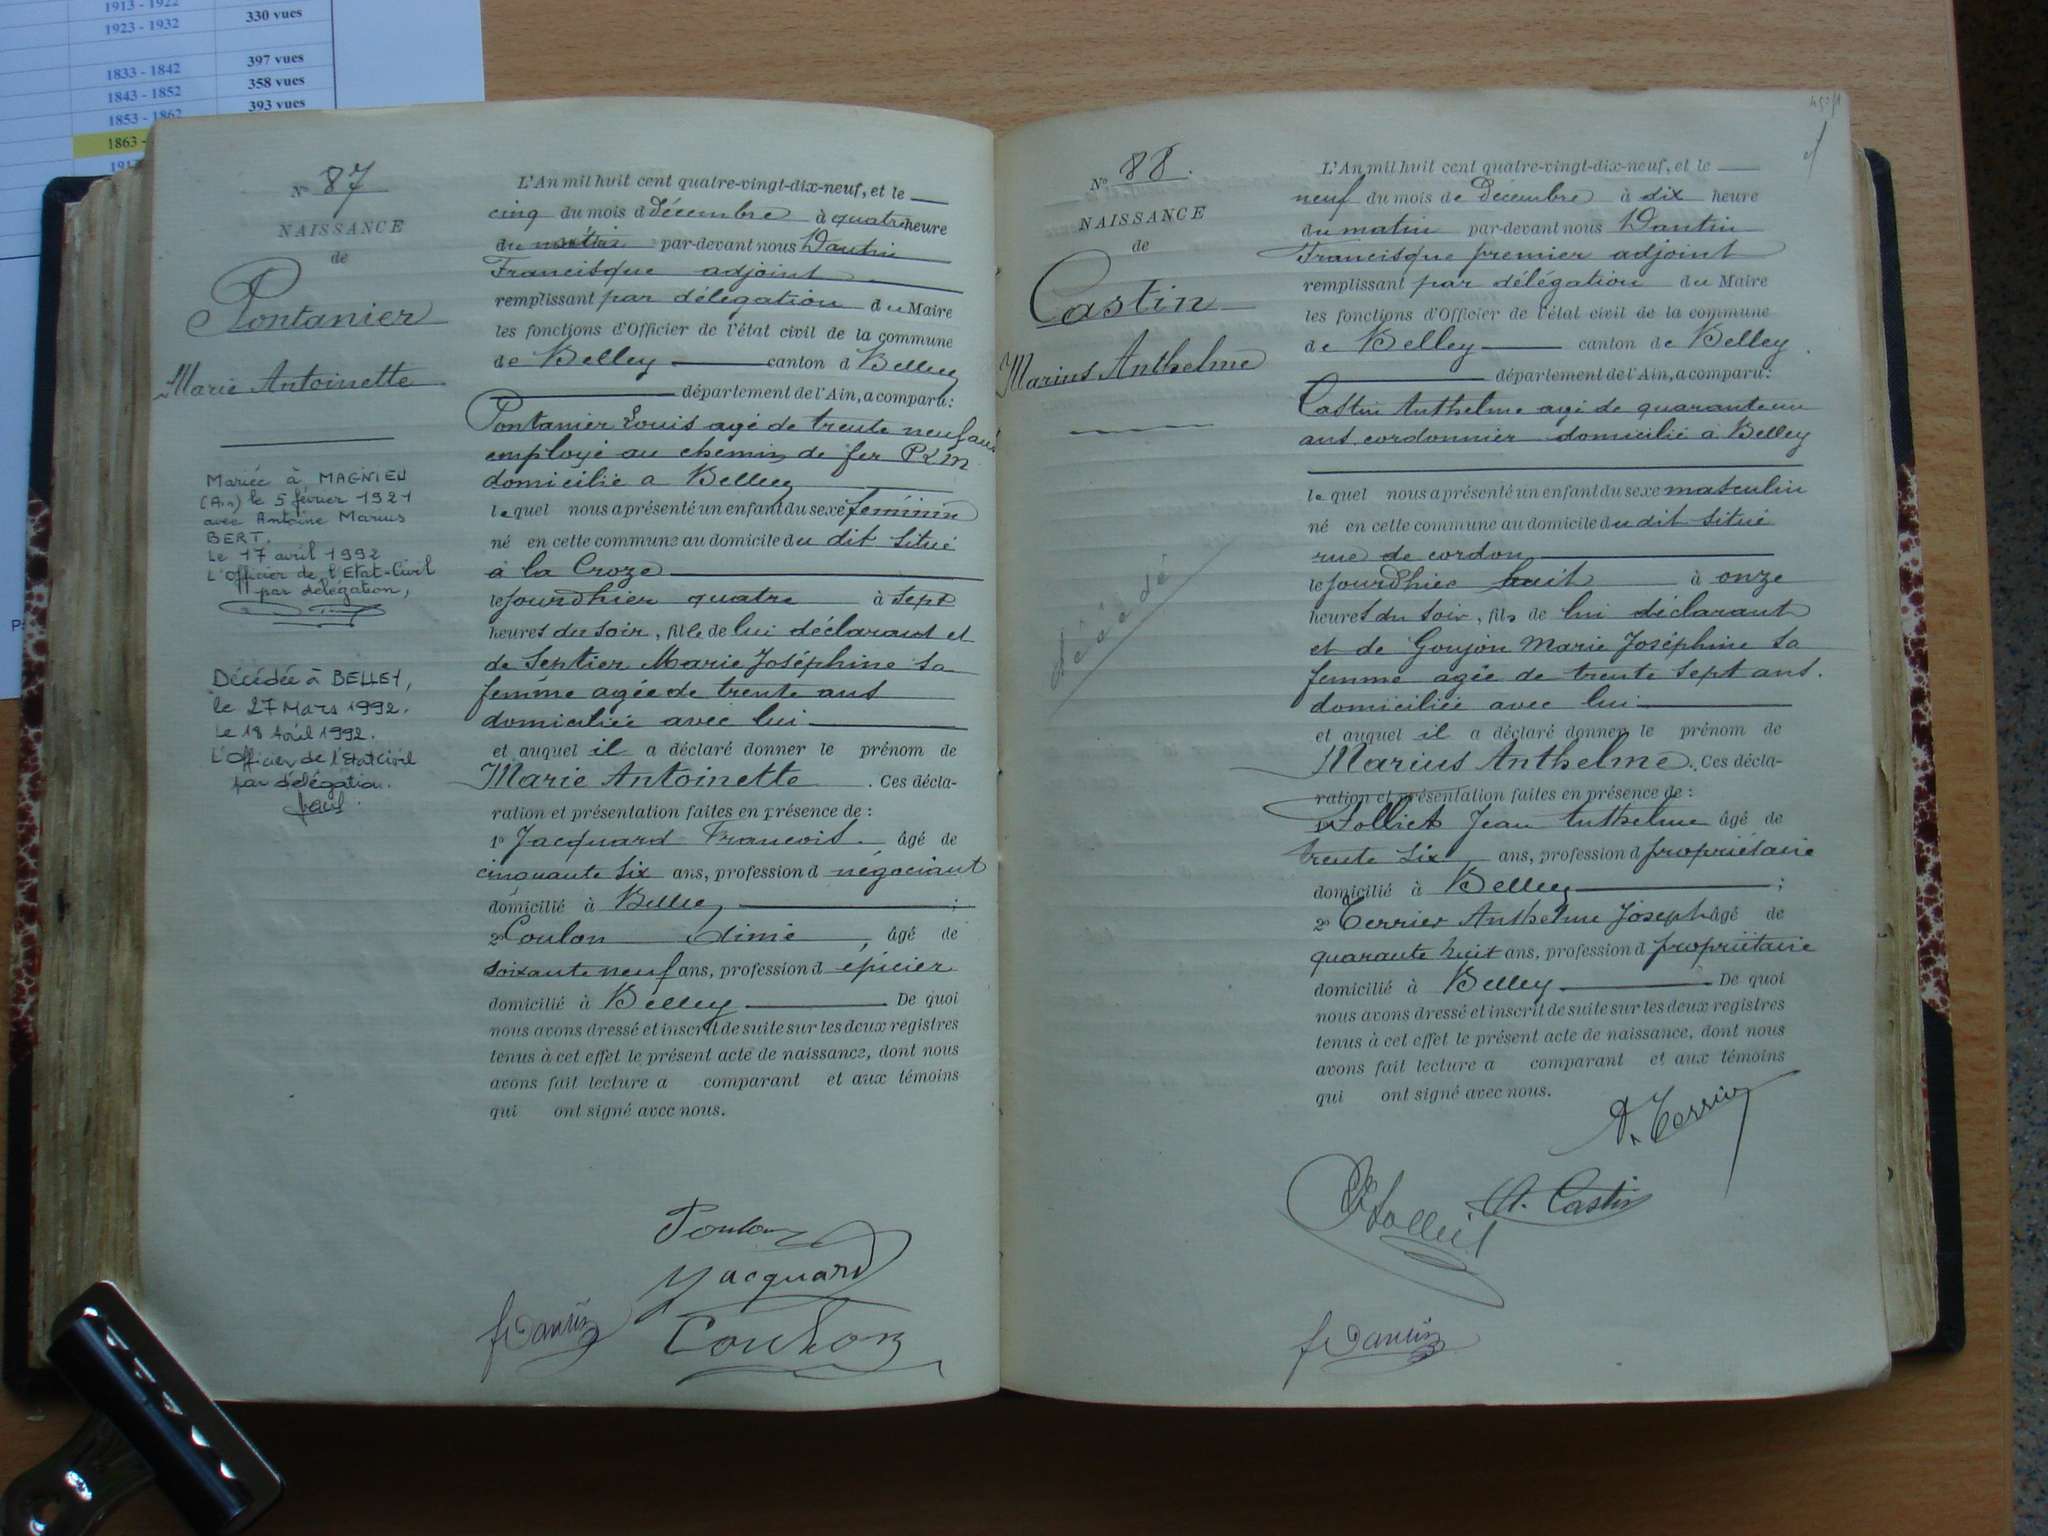 1913 - 1922
1923 - 1932 330 vues
397 vues
1833 - 1842 358 vues
1843 - 1852 393 vues
1853 - 1862
1863 -
N° 87
NAISSANCE
de
Pontanier
Marie Antoinette
Mariée à MAGNIEU
(Ain) le 5 février 1921
avec Antoine Marius
BERT.
Le 17 avril 1992
L'Officier de l'Etat-Civil
par délégation,
Décédée à BELLEY,
le 27 Mars 1992.
Le 18 Avril 1992.
L'Officier de l'Etat Civil
par délégation.
L'An mil huit cent quatre-vingt-dix-neuf, et le
cinq du mois d décembre à quatre heure
du par-devant nous Dantin
Francisque adjoint
remplissant par délégation du Maire
les fonctions d'Officier de l'état civil de la commune
de Belley canton d Belley
département de l'Ain, a comparu:
Pontanier Louis agé de trente neuf ans
employé au chemin de fer PLM
domicilié a Belley
le quel nous a présenté un enfant du sexe féminin
né en cette commune au domicile du dit situé
à la Croze
le jourdhier quatre à sept
heures du soir, fille de lui déclarant et
de Septier Marie Joséphine sa
femme agée de trente ans
domiciliée avec lui
et auquel il a déclaré donner le prénom de
Marie Antoinette. Ces décla-
ration et présentation faites en présence de :
1° Jacquard Francois âgé de
cinquante six ans, profession d négociant
domicilié à Belley ;
2° Coulon , âgé de
soixante neuf ans, profession d épicier
domicilié à Belley De quoi
nous avons dressé et inscrit de suite sur les deux registres
tenus à cet effet le présent acte de naissance, dont nous
avons fait lecture a comparant et aux témoins
qui ont signé avec nous.
Jacquard
f Dantin
Coulon
N° 88.
NAISSANCE
de
Castin
Marius Anthelme
décédé
L'An mil huit cent quatre-vingt-dix-neuf, et le
neuf du mois de Decembre à dix heure
du matin par-devant nous Dantin
Francisque premier adjoint
remplissant par délégation du Maire
les fonctions d'Officier de l'état civil de la commune
de Belley canton de Belley
département de l'Ain, a comparu:
Castin Anthelme agé de quarante un
ans cordonnier domicilié à Belley
le quel nous a présenté un enfant du sexe masculin
né en cette commune au domicile du dit situé
rue de cordon
le jourdhier huit à onze
heures du soir, fils de lui déclarant
et de Goujon Marie Joséphine sa
femme agée de trente sept ans.
domiciliée avec lui
et auquel il a déclaré donner le prénom de
Marius Anthelme. Ces décla-
ration et présentation faites en présence de :
1° Folliet Jean Anthelme âgé de
trente six ans, profession d propriétaire
domicilié à Belley ;
2° Terrier Anthelme Joseph âgé de
quarante huit ans, profession d propriétaire
domicilié à Belley De quoi
nous avons dressé et inscrit de suite sur les deux registres
tenus à cet effet le présent acte de naissance, dont nous
avons fait lecture a comparant et aux témoins
qui ont signé avec nous.
A. Terrier
A. Castin
f Dantin